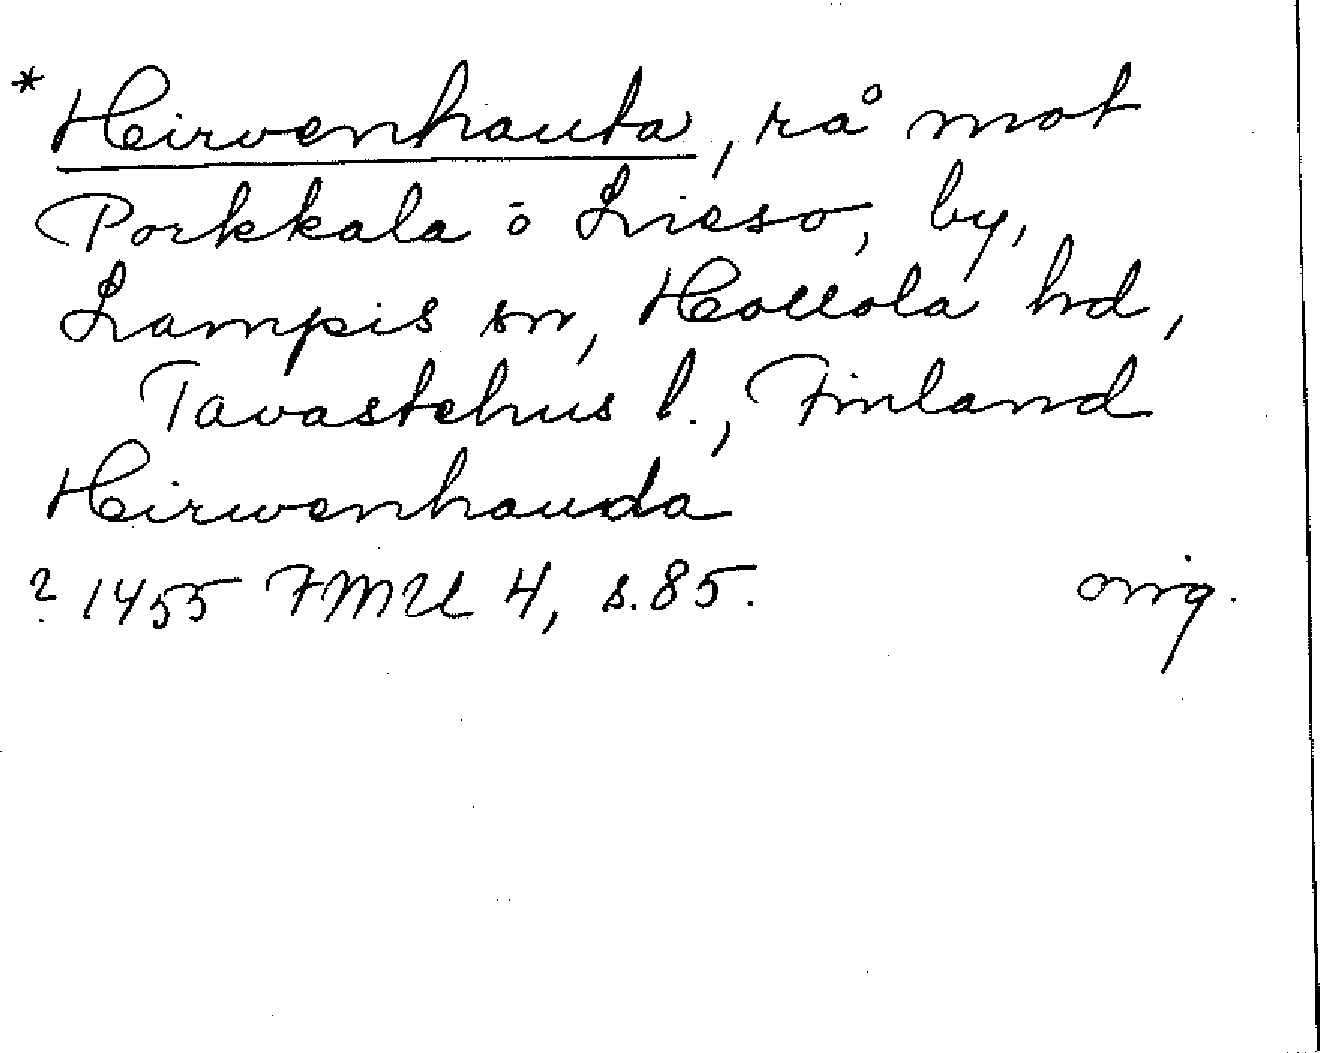 * Hirvenhauta, rå mot
Porkkala ö Lieso, by,
Lampis sn, Hollola hd,
Tavastehus l., Finland
Hirwenhauda
? 1455 FMU 4, s. 85. orig.